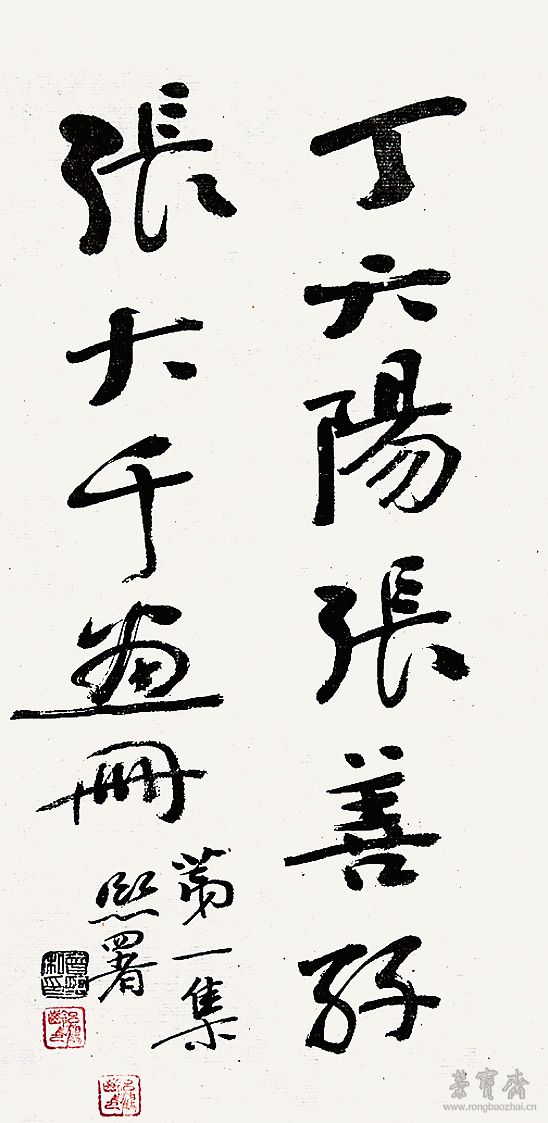 丁六陽張善孖
張大千畫冊
第一集
熙署
榮寶齋
www.rongbaozhai.cn